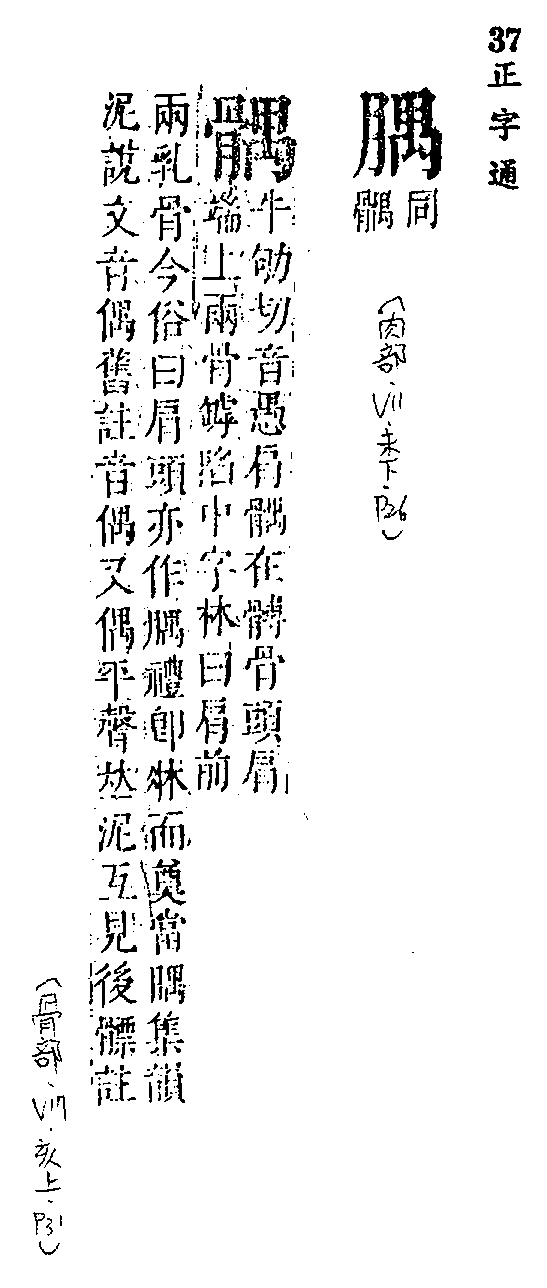 37正字通
腢
同髃
(肉部、VII.未下、P26)
髃
牛㓜切音愚肩髃在髆骨頭肩
端上兩骨罅陷中字林曰肩前
兩乳骨今俗曰肩頭亦作腢禮卽牀而奠當腢集韻
泥說文音偶舊註音偶又偶平聲𠀤泥互見後髎註
(骨部、VIII.亥上、P31)